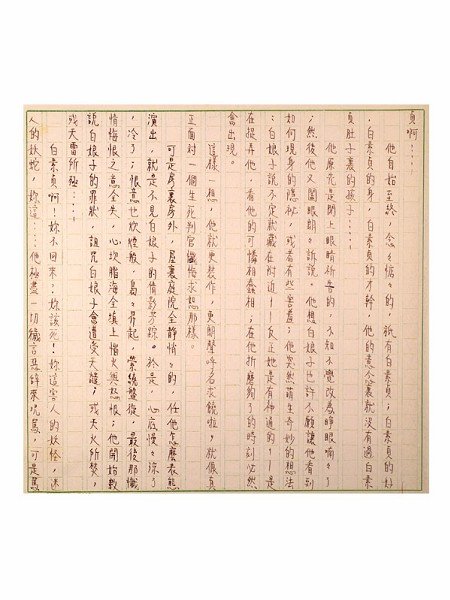 貞啊……
他自始至終，念々惦々的，祇有白素貞；白素貞的好
，白素貞的身，白素貞的才幹，他的意念裏就沒有過白素
貞肚子裏的孩子……
他原先是閉上眼睛祈告的，不知不覺改為睜眼喃々了
；然後他又闔眼朗々訴說。他想白娘子也許不願讓他看到
如何現身的隱祕，或者有些害羞；他突然萌生奇妙的想法
：白娘子說不定就藏在附近——反正她是有神通的——是
在捉弄他，看他的可憐相蠢相；在他折磨夠了的時刻必然
會出現。
這樣一想，他就更裝作，更朗聲求饒啦，就像真
正面對一個生死判官懺悔求恕那樣。
可是房裏房外，屋裏庭院全靜悄々的，任他怎麼表態
演出，就是不見白娘子的倩影芳踪。於是，心底慢々涼了
，冷了；恨意也般，裊々昇起，縈繞盤旋，最後那懺
情悔恨之意全失，心坎腦海全填上惱火與怨恨；他開始數
說白娘子的罪狀，詛咒白娘子會遭受天譴；或天火所焚，
或天雷所殛……
白素貞啊！妳不回來？妳該死！妳這害人的妖怪，迷
人的妖蛇，妳這……他盡一切言惡來咒罵，可是罵